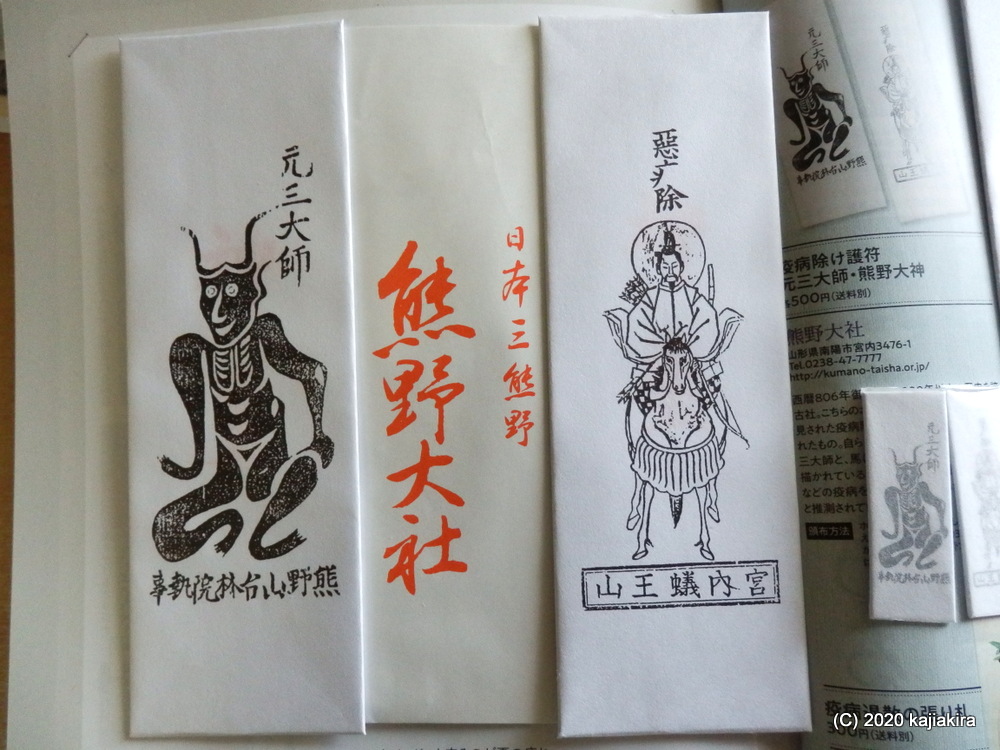 元三大師
熊野山台林院執事
日本三熊野
熊野大社
惡疒除
宮内蟻王山
元三大師
熊野山台林院執事
疫病除け護符
元三大師・熊野大神
500円(送料別)
熊野大社
山形県南陽市宮内3476-1
Tel.0238-47-7777
http://kumano-taisha.or.jp/
西暦806年御
古社。こちらの
見された疫病
れたもの。自ら
三大師と、馬
描かれている
などの疫病を
と推測されて
頒布方法
元三大師
熊野山台林院執事
疫病退散の張り札
300円(送料別)
(C) 2020 kajiakira